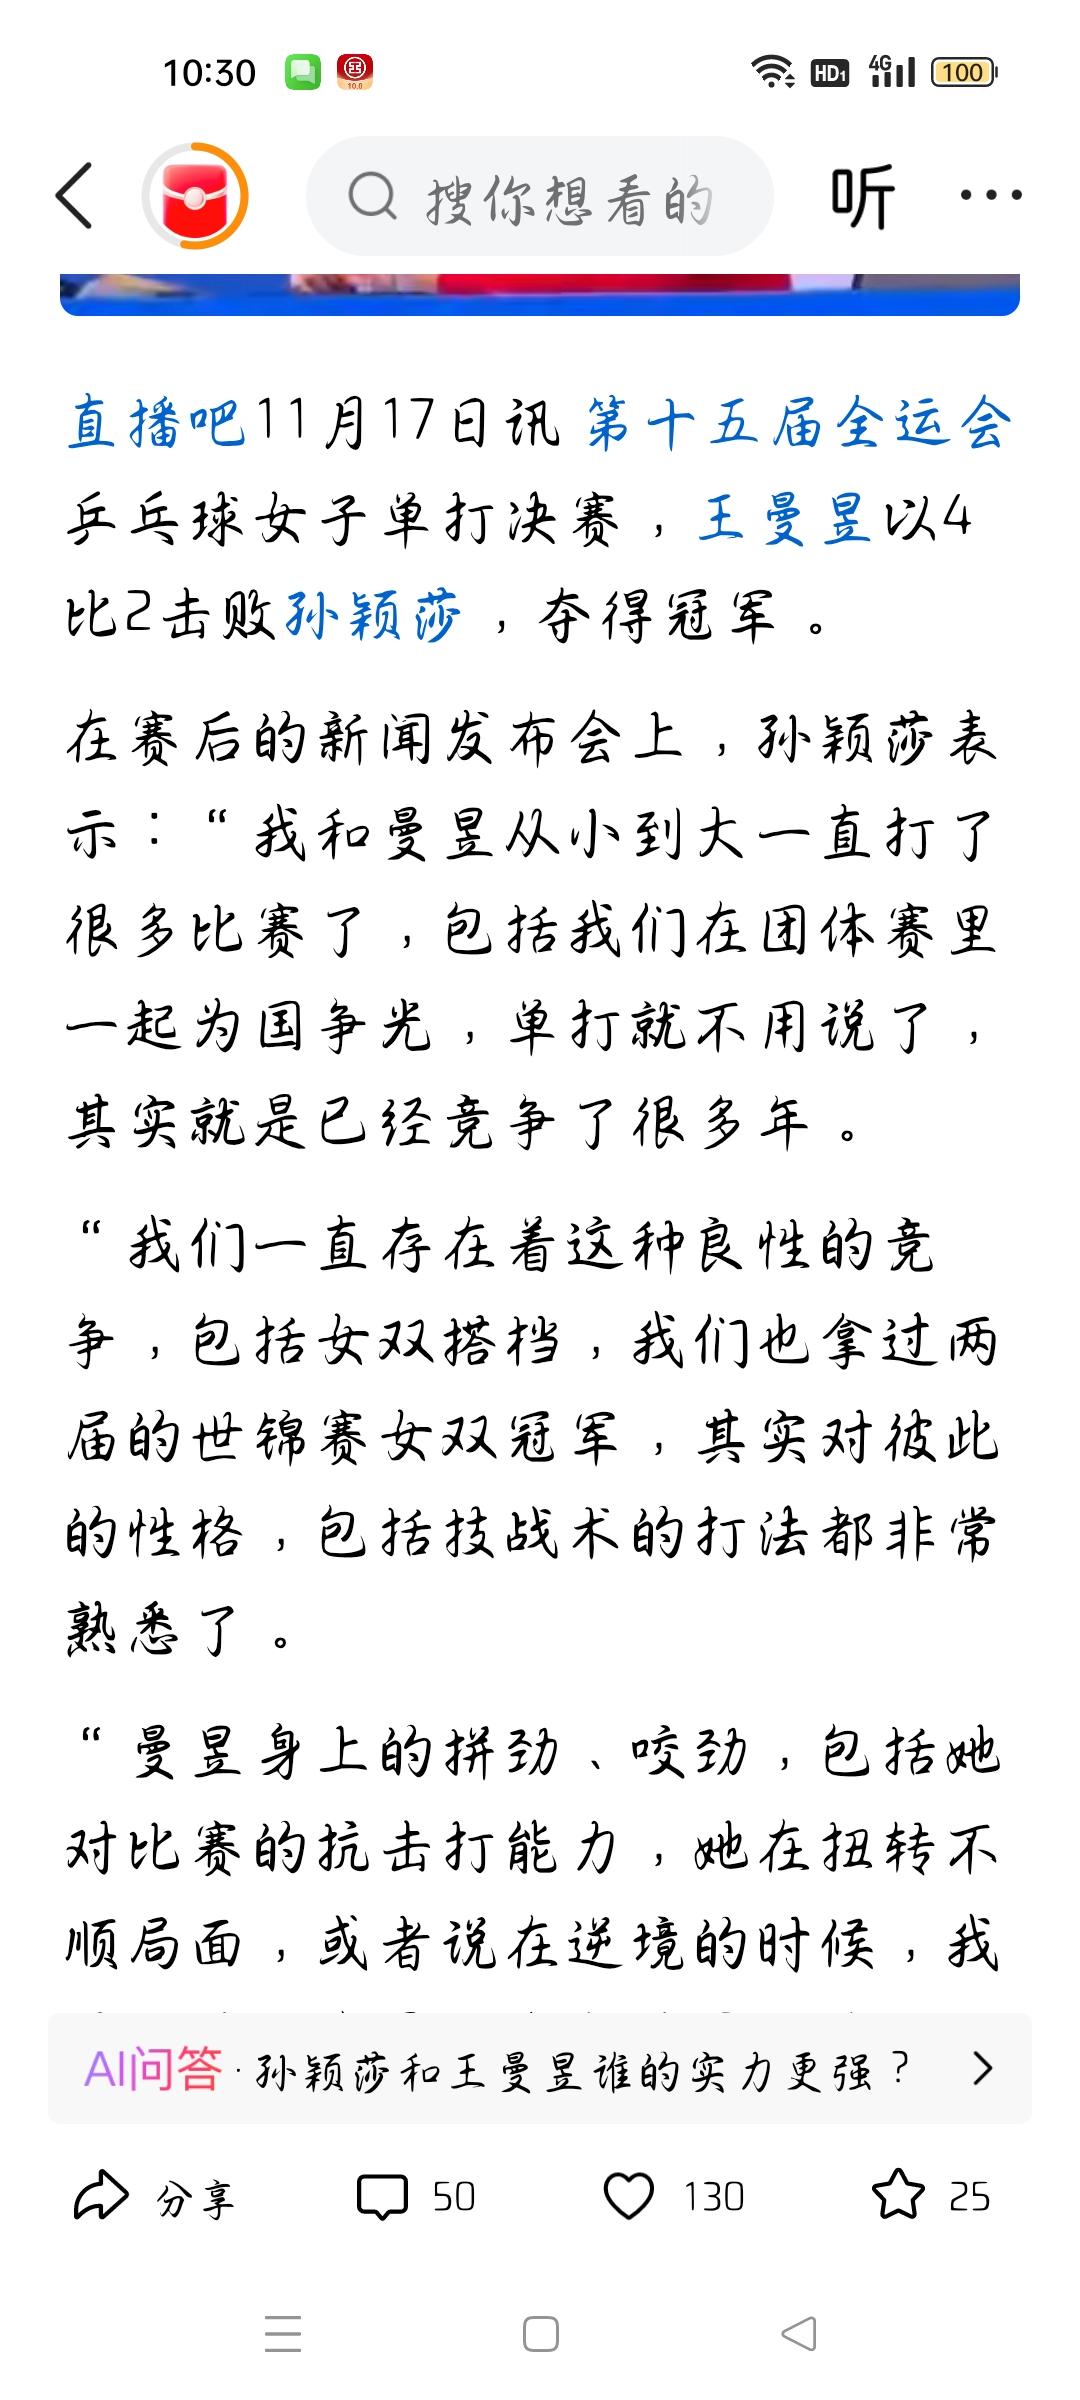 10:30
10.0
HD1
4G
100
搜你想看的
听
直播吧11月17日讯 第十五届全运会
乒乓球女子单打决赛，王曼昱以4
比2击败孙颖莎，夺得冠军。
在赛后的新闻发布会上，孙颖莎表
示：“我和曼昱从小到大一直打了
很多比赛了，包括我们在团体赛里
一起为国争光，单打就不用说了，
其实就是已经竞争了很多年。
“我们一直存在着这种良性的竞
争，包括女双搭档，我们也拿过两
届的世锦赛女双冠军，其实对彼此
的性格，包括技战术的打法都非常
熟悉了。
“曼昱身上的拼劲、咬劲，包括她
对比赛的抗击打能力，她在扭转不
顺局面，或者说在逆境的时候，我
AI问答·孙颖莎和王曼昱谁的实力更强？
分享
50
130
25